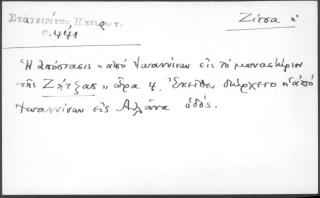 Σταγειρίτου Ηπειρωτ.
σ. 441
Ζίτσα η
"Η απόστασις "από Ιωαννίνων εις το μοναστήριον
της Ζίτζας" ώρα 4. Εκείθεν διήρχετο η από
Ιωαννίνων εις Αυλώνα οδός.